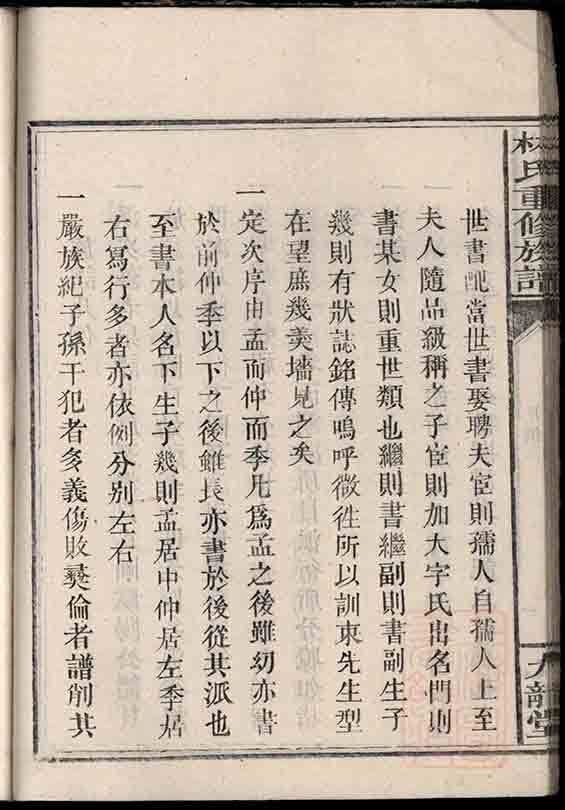 林氏重修族譜
九龍堂
世書配當世書娶聘夫宦則孺人自孺人上至
夫人隨品級稱之子宦則加大字氏出名門則
書某女則重世類也繼則書繼副則書副生子
幾則有狀誌銘傳嗚呼微徃所以訓東先生型
在望庶幾羙墻見之矣
一定次序由孟而仲而季凡爲孟之後雖幼亦書
於前仲季以下之後雖長亦書於後從其派也
至書本人名下生子幾則孟居中仲居左季居
右寫行多者亦依例分別左右
一嚴族紀子孫干犯者多義傷敗彝倫者譜削其